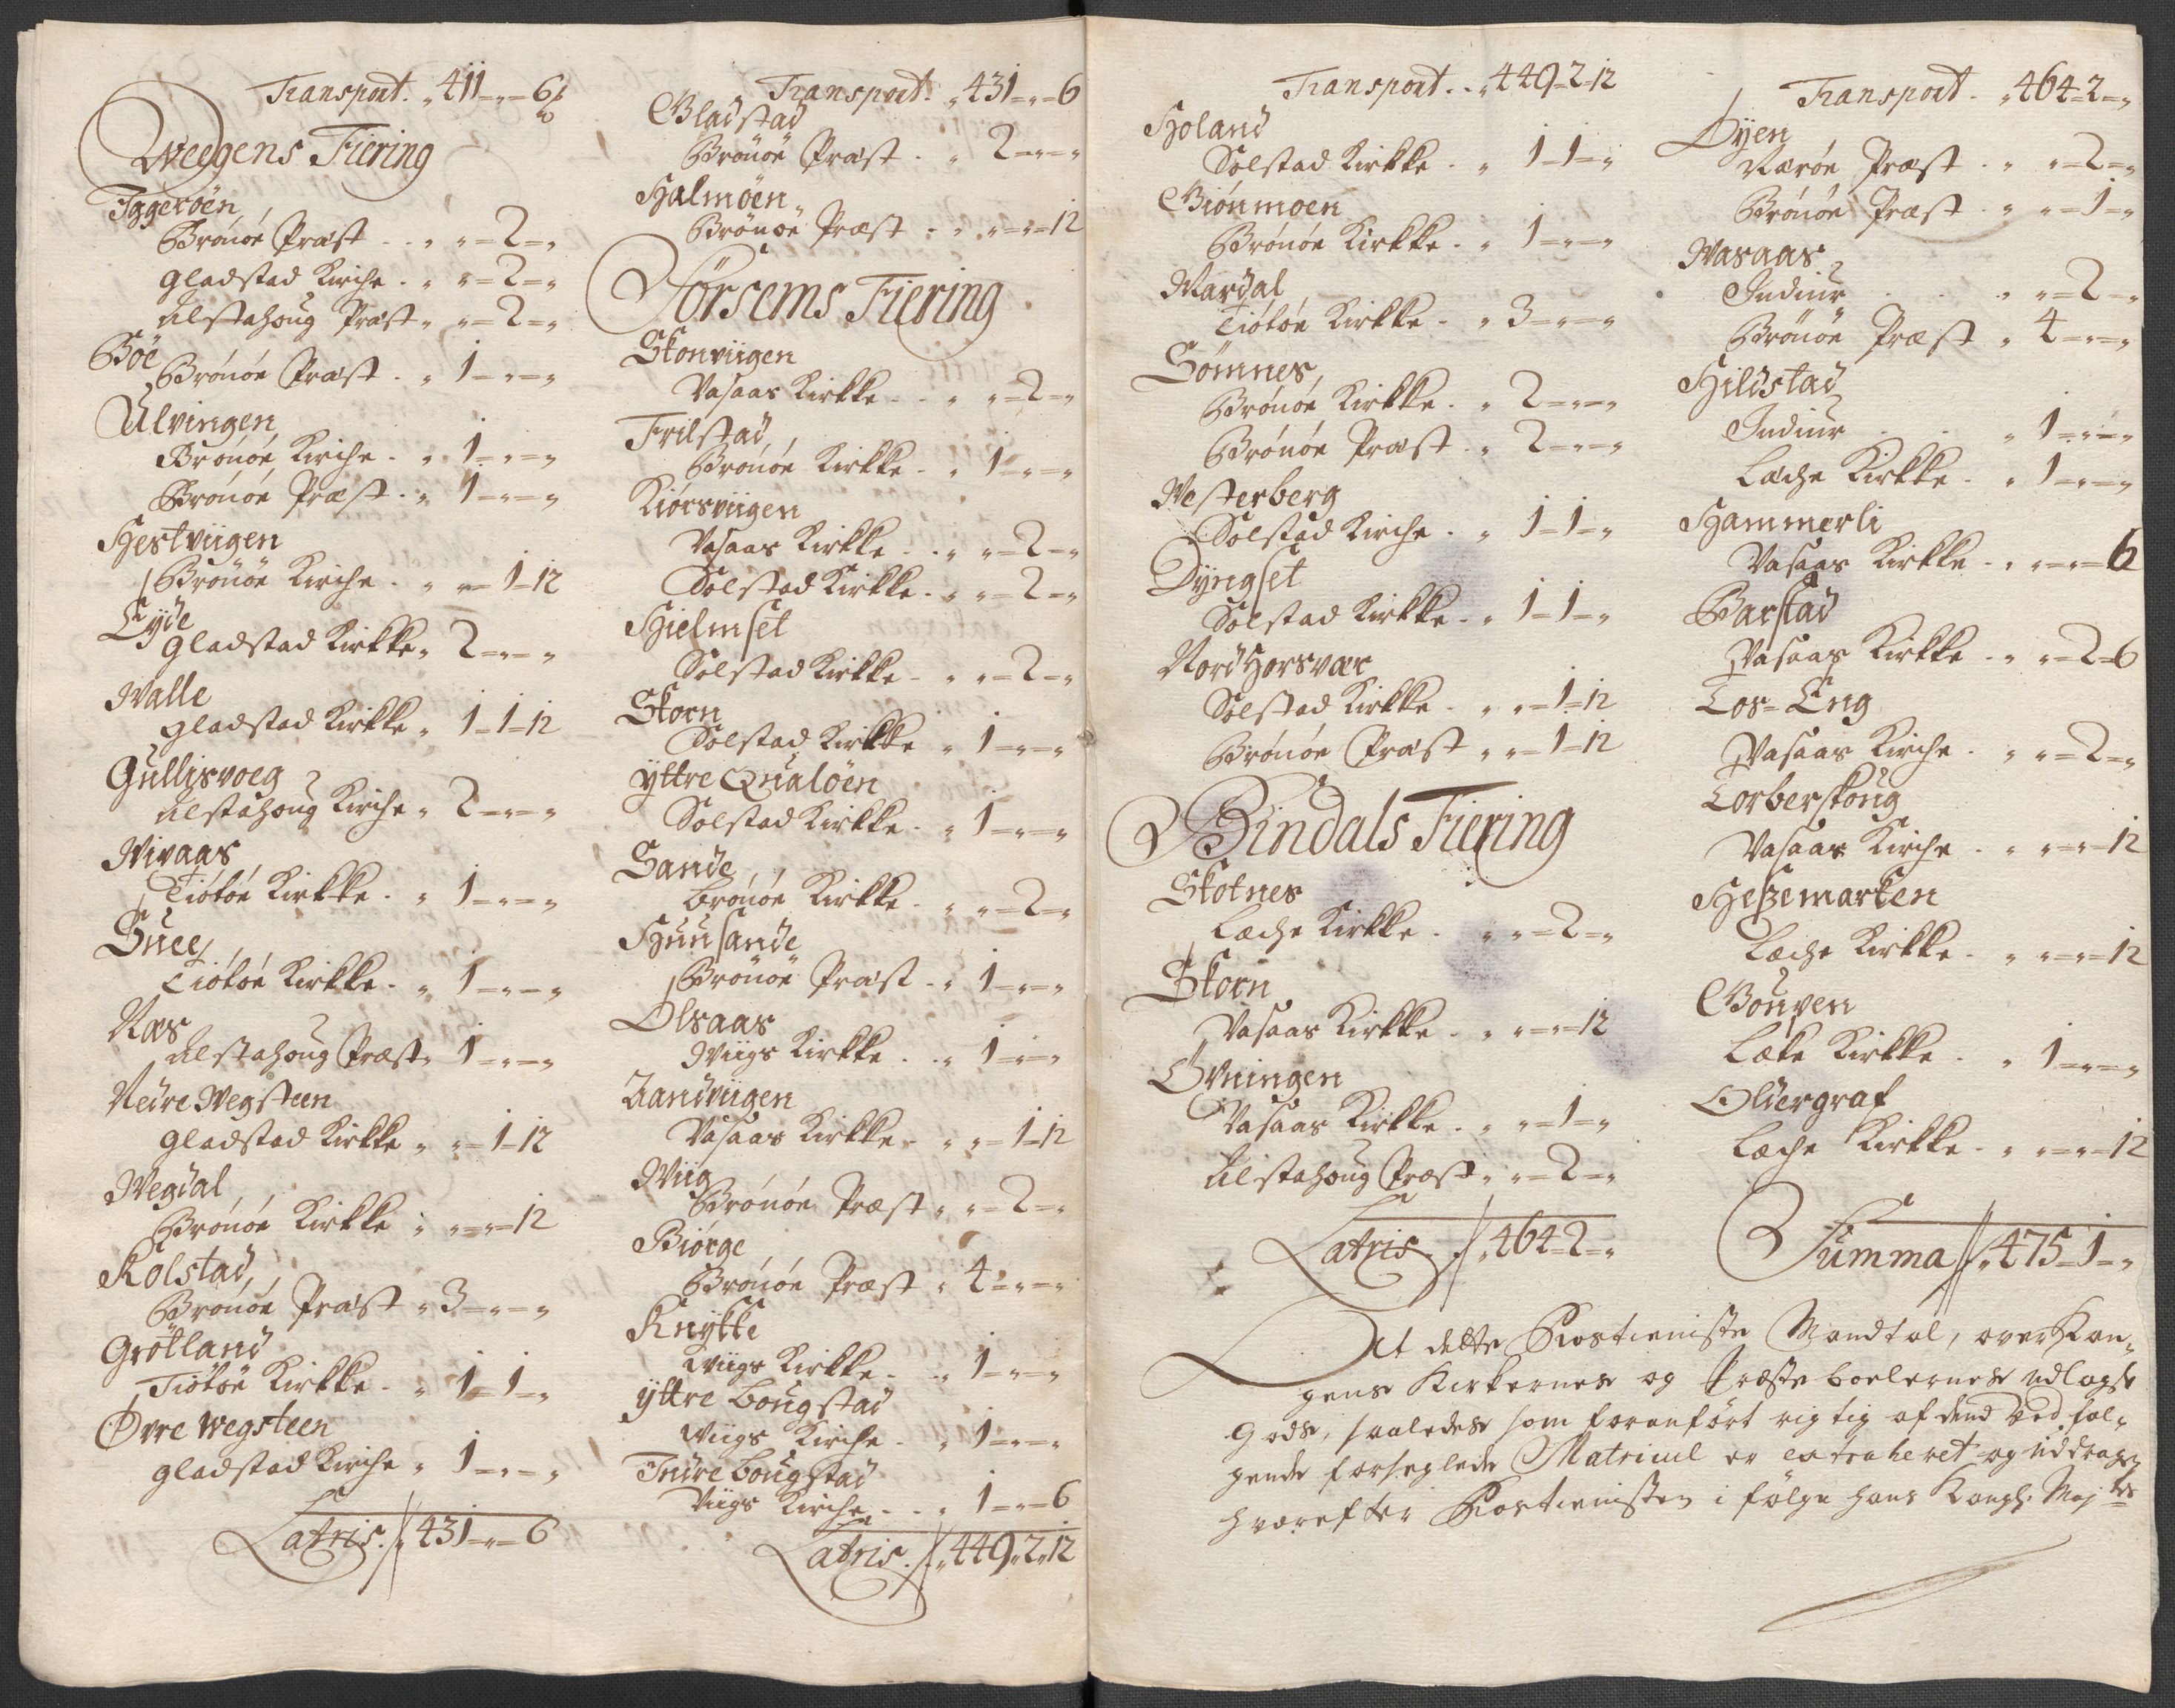 Transport. „ 411 „ 6
Weegens Fiering
Iggeröen
Brönöe Præst . . „ „ 2 „
Gladstad Kirche . „ „ 2 „
Alstahoug Præst „ „ 2 „
Böe
Brönöe Præst . „ 1 „ „
Ulvingen
Brönöe Kirche . „ 1 „ „
Brönöe Præst . „ 1 „ „
Hestviigen
Brönöe Kirche . „ „ 1 12
Eyde
Gladstad Kirkke „ 2 „ „
Walle
Gladstad Kirkke „ 1 1 12
Gullisvoeg
Alstahoug Kirche „ 2 „ „
Wivaas
Tiötöe Kirkke . „ 1 „ „
Suee
Tiötöe Kirkke . „ 1 „ „
Næs
Alstahoug Præst „ 1 „ „
Nedre Wegsteen
Gladstad Kirkke „ „ 1 12
Wegdal
Brönöe Kirkke „ „ „ 12
Kolstad
Brönöe Præst „ 3 „ „
Grötland
Tiötöe Kirkke . „ 1 1 „
Øvre Wegsteen
Gladstad Kirche „ 1 „ „
Latris. „ 431 „ 6
Transport. „ 431 „ 6
Gladstad
Brönöe Præst . „ 2 „ „
Halmöen
Brönöe Præst . „ „ „ 12
Törsems Fiering
Skonviigen
Vasaas Kirkke . . „ „ 2 „
Frilstad
Brönöe Kirkke . „ 1 „ „
Kiörsviigen
Vasaas Kirkke . . „ „ 2 „
Solstad Kirkke . „ „ 2 „
Hielmset
Solstad Kirkke . „ „ 2 „
Storn
Solstad Kirkke „ 1 „ „
Yttre Qualöen
Solstad Kirkke . „ 1 „ „
Sande
Brönöe Kirkke . „ „ 2 „
Huusande
Brönöe Præst . „ 1 „ „
Olsaas
Wiigs Kirkke . „ 1 „ „
Aandviigen
Vasaas Kirkke . „ „ 1 12
Wiig
Brönöe Præst „ „ 2 „
Biörge
Brönöe Præst „ 4 „ „
Knytte
Wiigs Kirkke . „ 1 „ „
Yttre Bougstad
Wiigs Kirche . „ 1 „ „
Indre Bougstad
Viigs Kirche . . „ 1 „ 6
Latris. „ 449 „ 2 „ 12
Transport . . „ 449 2 12
Holand
Solstad Kirkke . „ 1 1 „
Giönmoen
Brönöe Kirkke . „ 1 „ „
Mardal
Tiötöe Kirkke . „ 3 „ „
Sömnes
Brönöe Kirkke . „ 2 „ „
Brönöe Præst . „ 2 „ „
Westerberg
Solstad Kirche . „ 1 1 „
Dyngset
Solstad Kirkke . „ 1 1 „
Nord Horsvær
Solstad Kirkke . „ „ 1 12
Brönöe Præst „ „ 1 12
Bindals Fiering
Skotnes
Læche Kirkke . „ „ 2 „
Storn
Vasaas Kirkke . „ „ „ 12
Øvningen
Vasaas Kirkke . „ „ 1 „
Alstahoug Præst „ „ 2 „
Latris. „ 464 2 „
Transport . „ 464 2 „
Øyen
Nærøe Præst . „ „ 2 „
Brönöe Præst . „ „ 1 „
Wasaas
Indiur . . „ „ 2 „
Brönöe Præst „ 4 „ „
Hildstad
Indiur . . „ 1 „ „
Læche Kirkke . „ 1 „ „
Hammerli
Vasaas Kirkke . „ „ „ 6
Barstad
Vasaas Kirkke . „ „ 2 6
Tos-Eng
Vasaas Kirche . „ „ 2 „
Torberskoug
Vasaas Kirche . „ „ „ 12
Heszemarken
Læche Kirkke . „ „ „ 12
Gouven
Læke Kirkke . „ 1 „ „
Oldergraf
Læche Kirkke . „ „ „ 12
Summa „ 475 1 „
At dette Rostieniste Mandtal, over Kon„
gens Kirkernes og Præste boelernes udlagde
Gods, saaledes som foranfört rigtig af dend Ved föl„
gende forseglede Matricul er extraheret og uddragen
hvorefter Rostienisten i fölge hans Kongl. Maj.ts